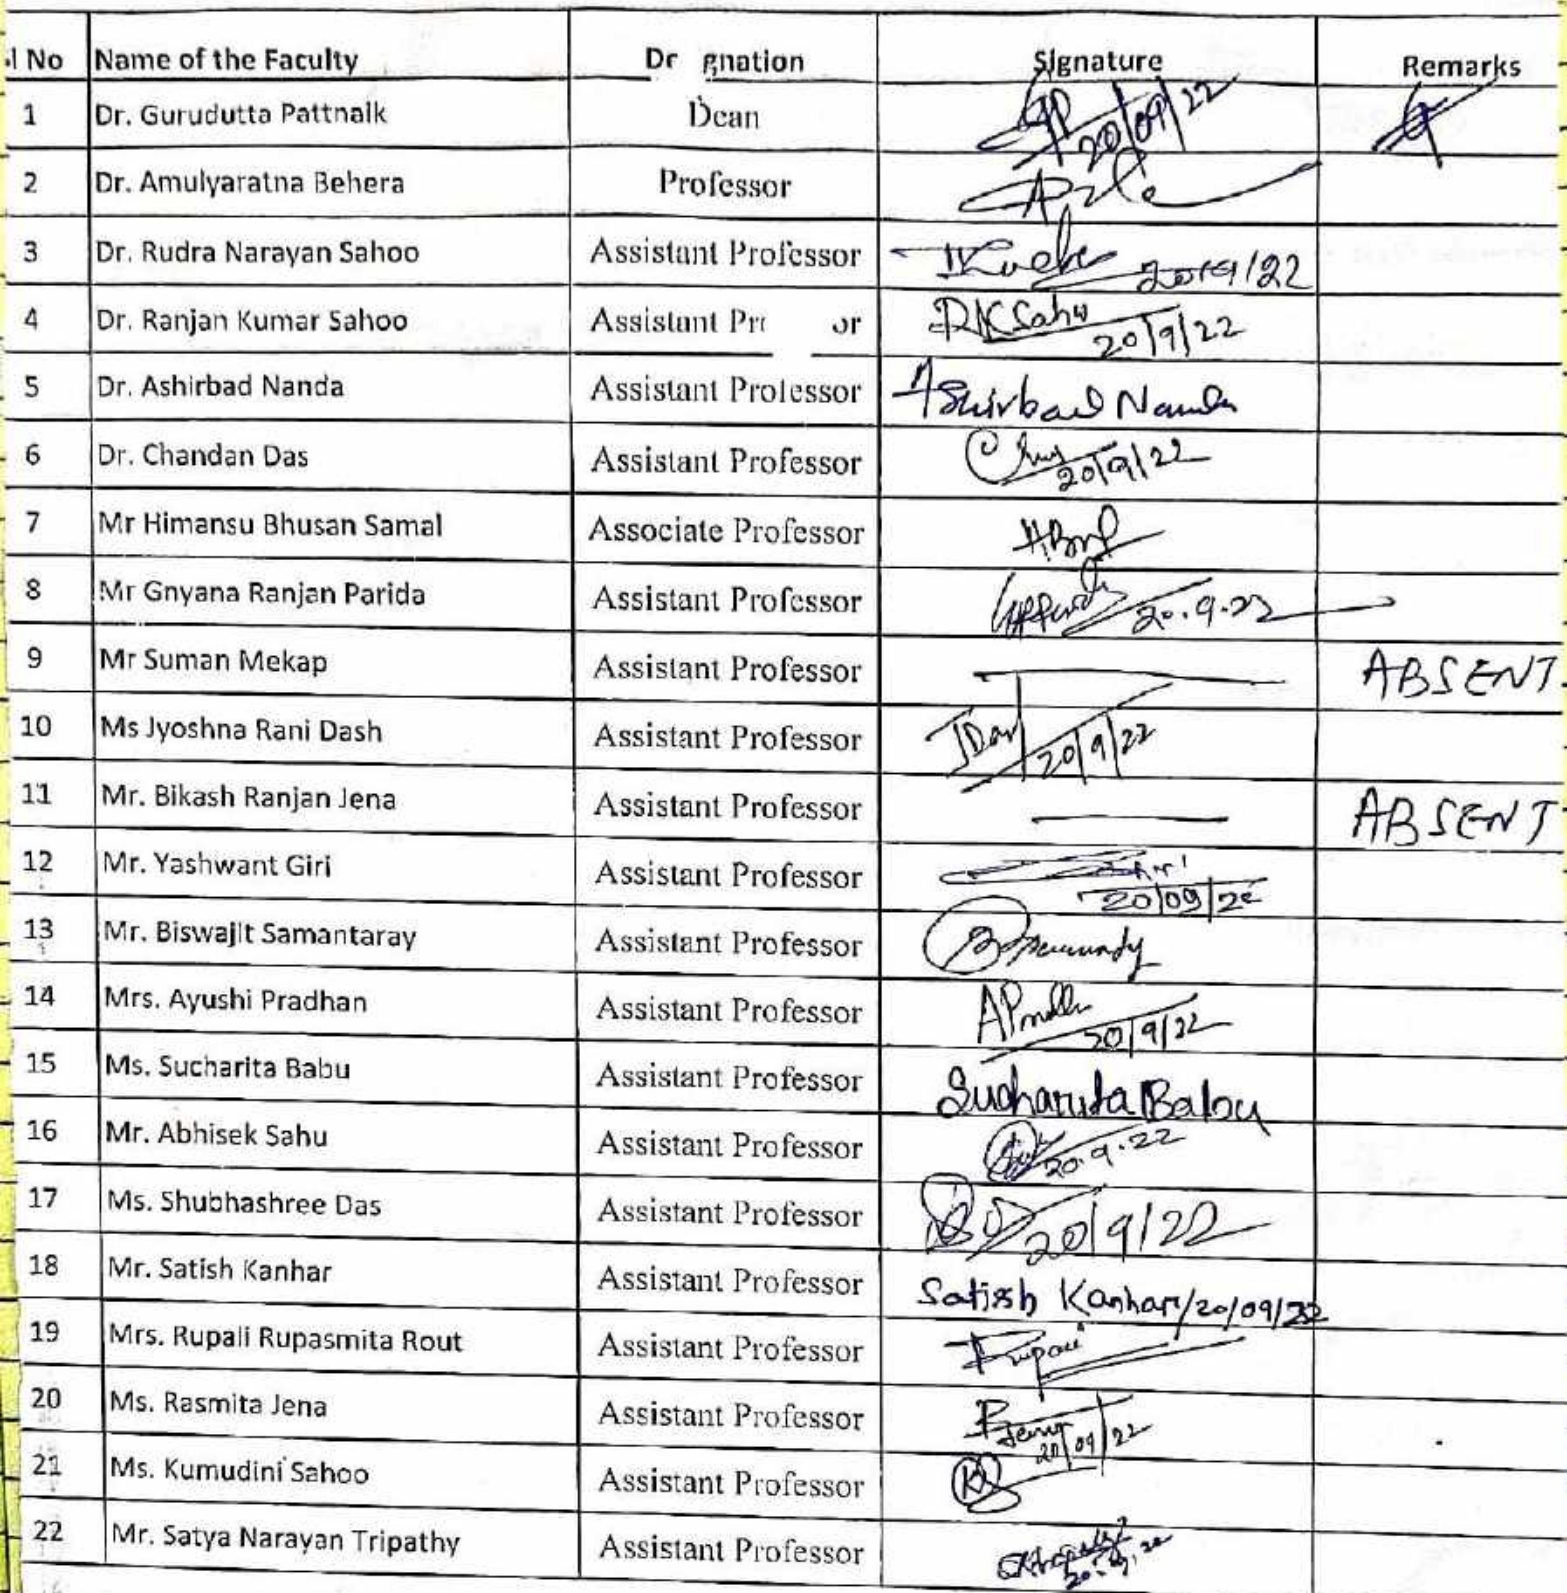 l No Name of the Faculty Dr gnation Signature Remarks
1 Dr. Gurudutta Pattnaik Dean GP 20/09/22
2 Dr. Amulyaratna Behera Professor
3 Dr. Rudra Narayan Sahoo Assistant Professor 20/9/22
4 Dr. Ranjan Kumar Sahoo Assistant Pr or RKSahu 20/9/22
5 Dr. Ashirbad Nanda Assistant Professor Ashirbad Nanda
6 Dr. Chandan Das Assistant Professor 20/9/22
7 Mr Himansu Bhusan Samal Associate Professor
8 Mr Gnyana Ranjan Parida Assistant Professor 20.9.22
9 Mr Suman Mekap Assistant Professor ABSENT
10 Ms Jyoshna Rani Dash Assistant Professor JDash 20/9/22
11 Mr. Bikash Ranjan Jena Assistant Professor ABSENT
12 Mr. Yashwant Giri Assistant Professor 20/09/22
13 Mr. Biswajit Samantaray Assistant Professor
14 Mrs. Ayushi Pradhan Assistant Professor 20/9/22
15 Ms. Sucharita Babu Assistant Professor Sucharita Babu
16 Mr. Abhisek Sahu Assistant Professor 20.9.22
17 Ms. Shubhashree Das Assistant Professor 20/9/22
18 Mr. Satish Kanhar Assistant Professor Satish Kanhar/20/09/22
19 Mrs. Rupali Rupasmita Rout Assistant Professor Rupali
20 Ms. Rasmita Jena Assistant Professor RJena 20/09/22
21 Ms. Kumudini Sahoo Assistant Professor KS
22 Mr. Satya Narayan Tripathy Assistant Professor 20.9.22